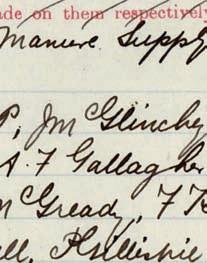 ade on them respectively
Manure Supply
P, Jm Glinchey
A. F Gallagher
Gready, F
ll, P Gillispie